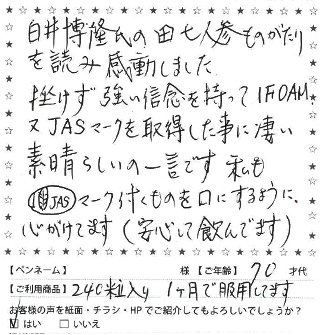 白井博隆氏の田七人参ものがたり
を読み感動しました
挫けず強い信念を持ってIFOAM、
又JASマークを取得した事に凄い
素晴らしいの一言です 私も
JASマーク付くものを口にするように、
心がけてます(安心して飲んでます)
【ペンネーム】 様【ご年齢】70才代
【ご利用商品】240粒入り 1ヶ月で服用してます
お客様の声を紙面・チラシ・HPでご紹介してもよろしいでしょうか?
はい いいえ